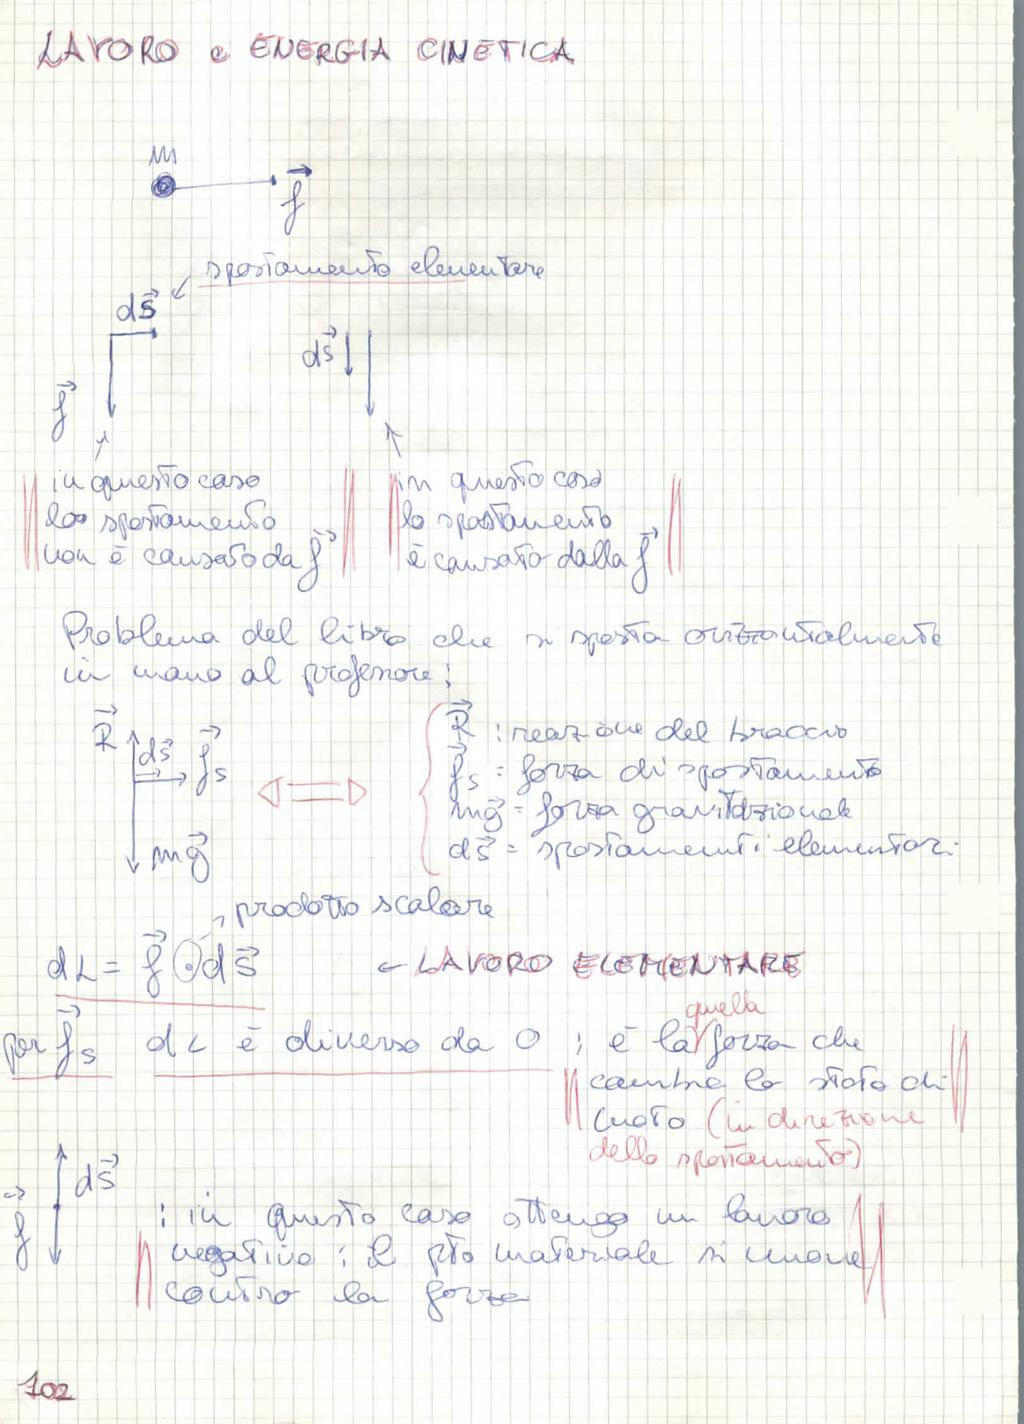 LAVORO e ENERGIA CINETICA
m
f⃗
spostamento elementare
ds⃗
ds⃗
f⃗
in questo caso
lo spostamento
non è causato da f⃗
in questo caso
lo spostamento
è causato dalla f⃗
Problema del libro che si sposta orizzontalmente
in mano al professore:
R⃗ ds⃗ f⃗s
mg⃗
R⃗ : reazione del braccio
f⃗s = forza di spostamento
mg⃗ = forza gravitazionale
ds⃗ = spostamenti elementari
prodotto scalare
dL = f⃗ · ds⃗ ← LAVORO ELEMENTARE
quella
per f⃗s dL è diverso da 0 ; è la forza che
cambia lo stato di
moto (in direzione
dello spostamento)
ds⃗
f⃗
: in questo caso ottengo un lavoro
negativo : il pto materiale si muove
contro la forza
102